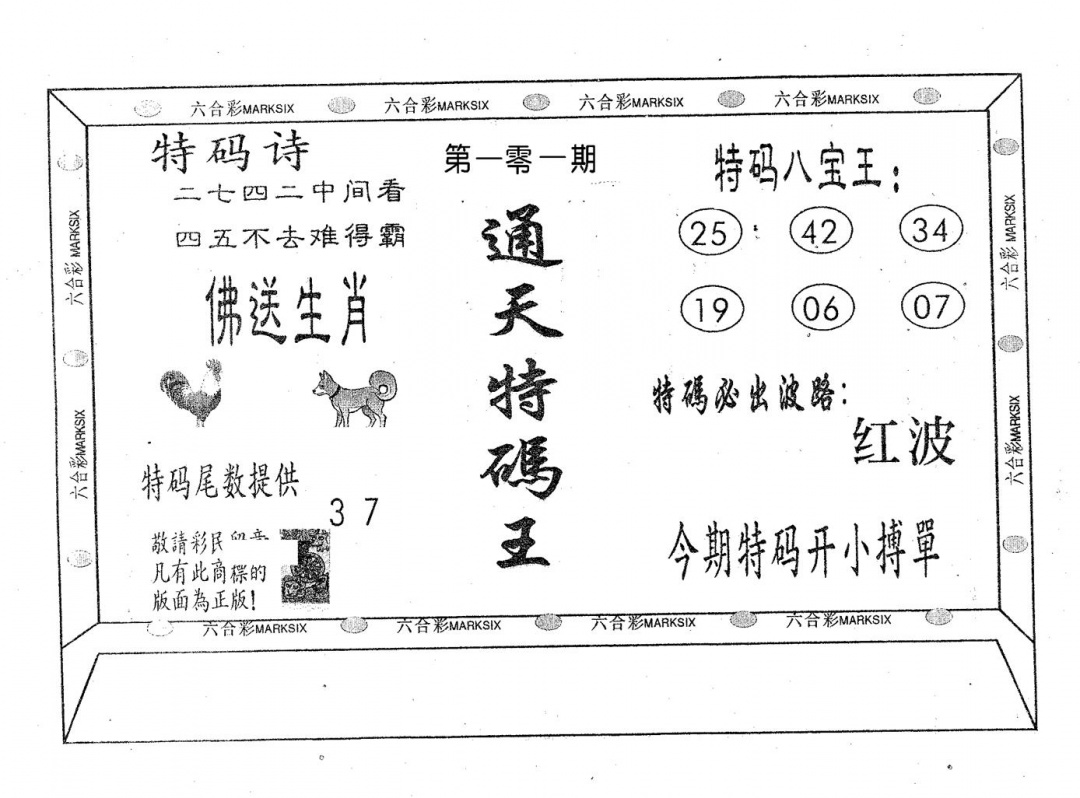 六合彩MARKSIX 六合彩MARKSIX 六合彩MARKSIX 六合彩MARKSIX
特码诗
二七四二中间看
四五不去难得霸
佛送生肖
特码尾数提供
3 7
敬請彩民
凡有此商標的
版面為正版!
第一零一期
通天特碼王
特码八宝王:
25 42 34
19 06 07
特碼必出波路:
红波
今期特码开小搏單
六合彩 MARKSIX
六合彩MARKSIX
六合彩 MARKSIX
六合彩MARKSIX
六合彩MARKSIX 六合彩MARKSIX 六合彩MARKSIX 六合彩MARKSIX